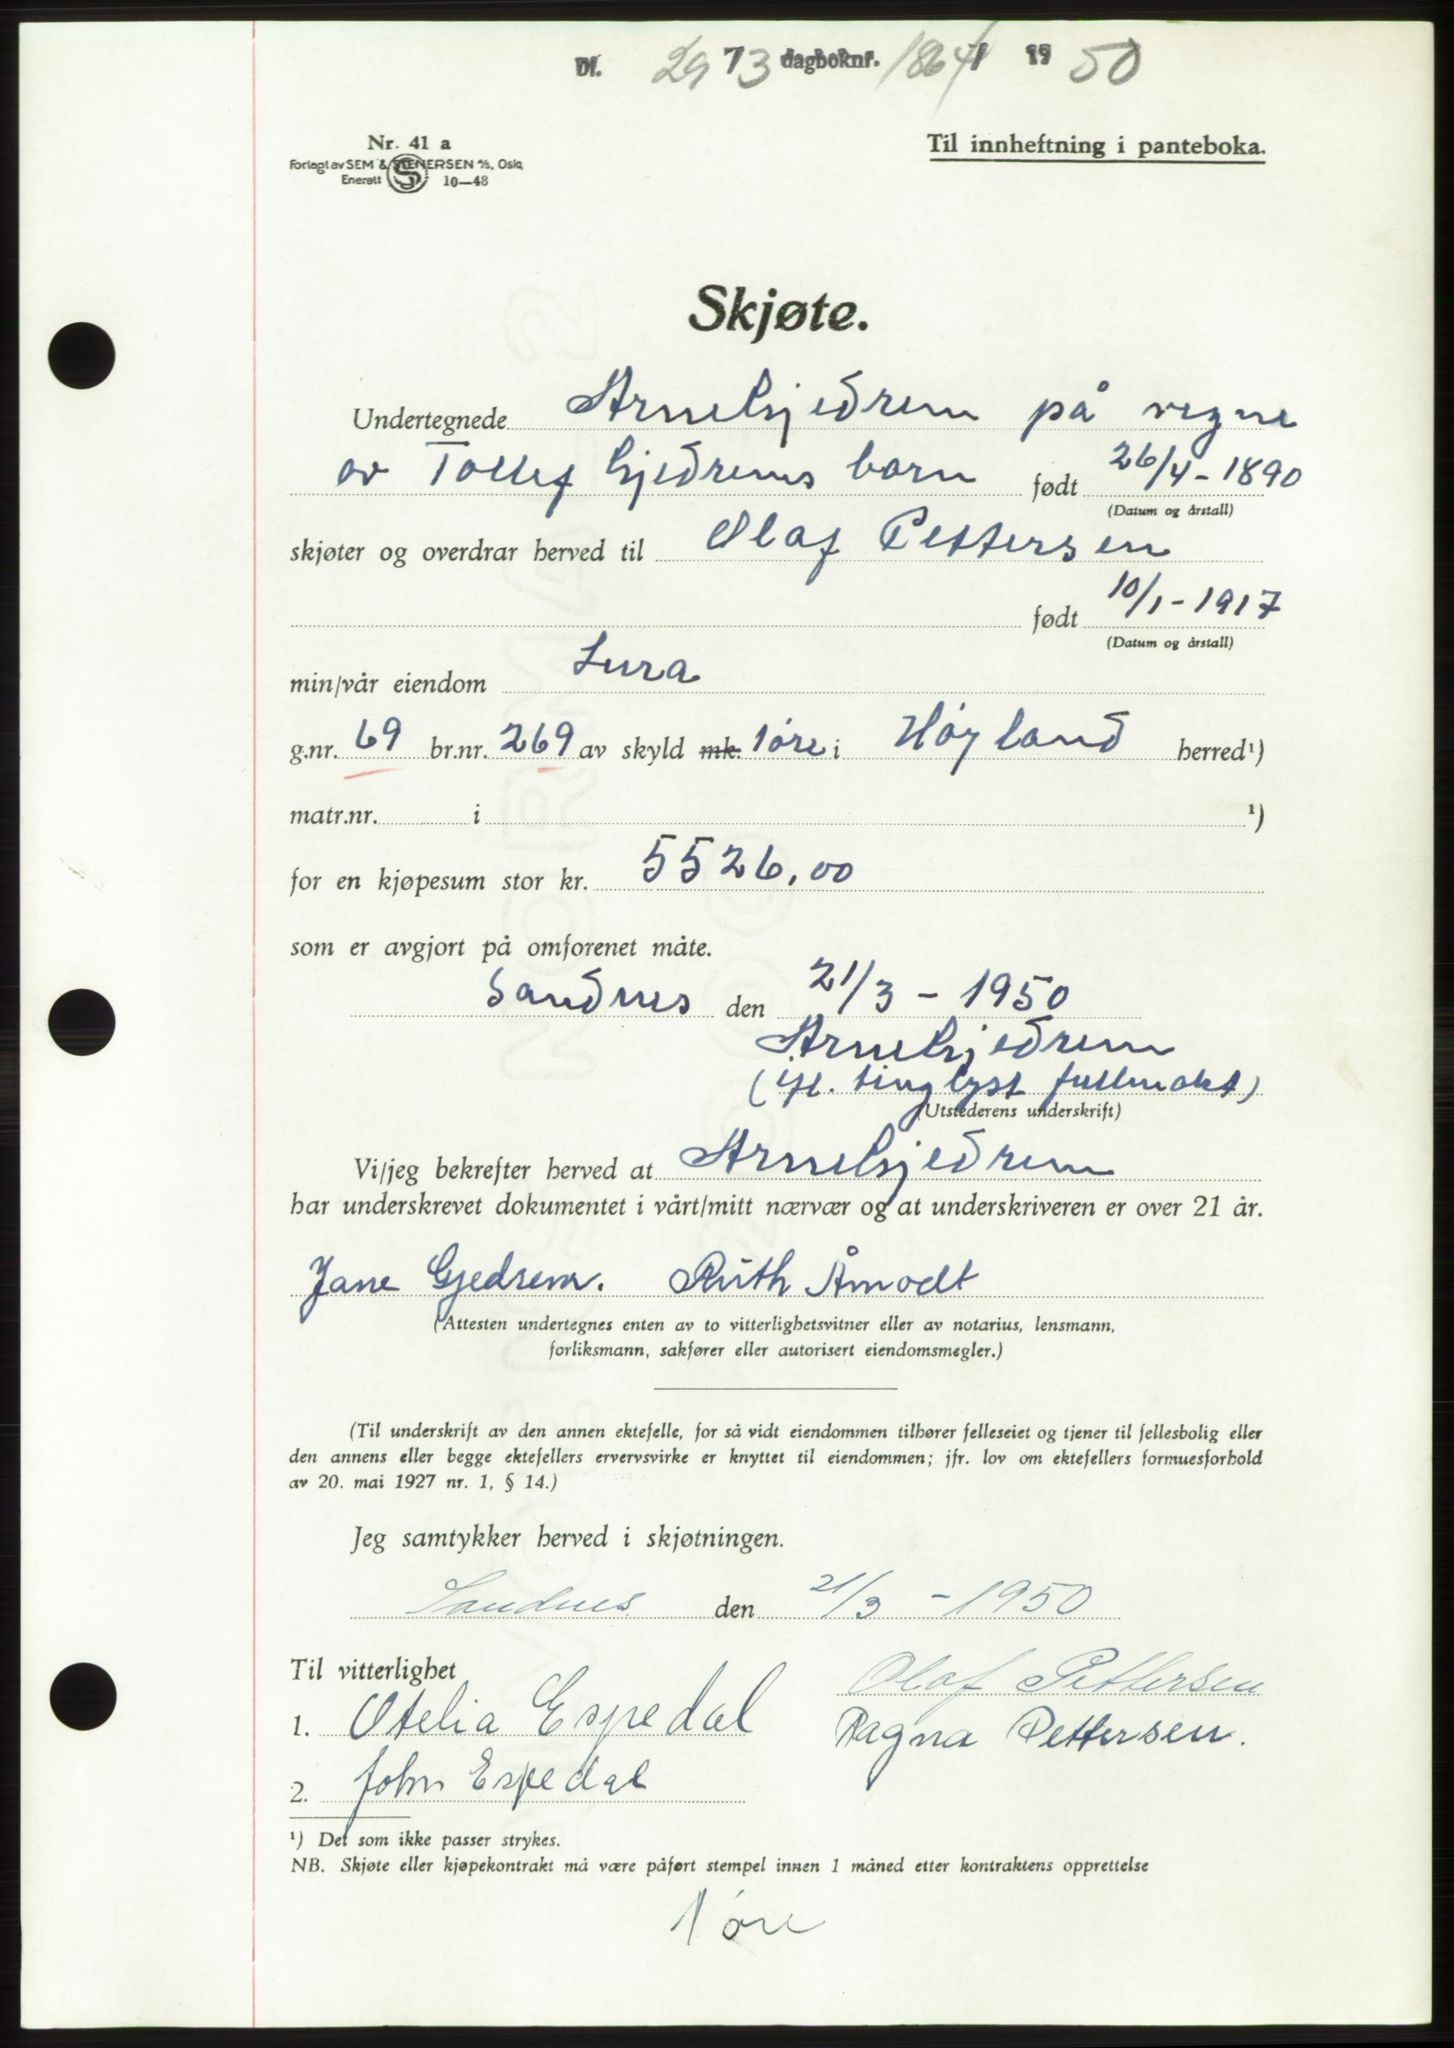 Df. 2973 dagboknr. 1864 1950
Nr. 41 a
Til innheftning i panteboka.
Forlagt av SEM & STENERSEN A/S, Oslo
Enerett 10—48
Skjøte.
Undertegnede Arne Gjedrem på vegne
av Tollef Gjedrems barn født 26/4-1890
(Datum og årstall)
skjøter og overdrar herved til Olaf Pettersen
født 10/1-1917
(Datum og årstall)
min/vår eiendom Lura
g.nr. 69 br.nr. 269 av skyld mk. 1 øre i Høyland herred¹)
matr.nr. i ¹)
for en kjøpesum stor kr. 5526,00
som er avgjort på omforenet måte.
Sandnes den 21/3 - 1950
Arne Gjedrem
(ifl. tinglyst fullmakt)
(Utstederens underskrift)
Vi/jeg bekrefter herved at Arne Gjedrem
har underskrevet dokumentet i vårt/mitt nærvær og at underskriveren er over 21 år.
Jane Gjedrem. Ruth Åmodt
(Attesten undertegnes enten av to vitterlighetsvitner eller av notarius, lensmann,
forliksmann, sakfører eller autorisert eiendomsmegler.)
(Til underskrift av den annen ektefelle, for så vidt eiendommen tilhører felleseiet og tjener til fellesbolig eller
den annens eller begge ektefellers ervervsvirke er knyttet til eiendommen; jfr. lov om ektefellers formuesforhold
av 20. mai 1927 nr. 1, § 14.)
Jeg samtykker herved i skjøtningen.
Sandnes den 21/3 - 1950
Til vitterlighet
Olaf Pettersen
1. Otelia Espedal
Ragna Pettersen.
2. John Espedal
¹) Det som ikke passer strykes.
NB. Skjøte eller kjøpekontrakt må være påført stempel innen 1 måned etter kontraktens opprettelse
1 øre